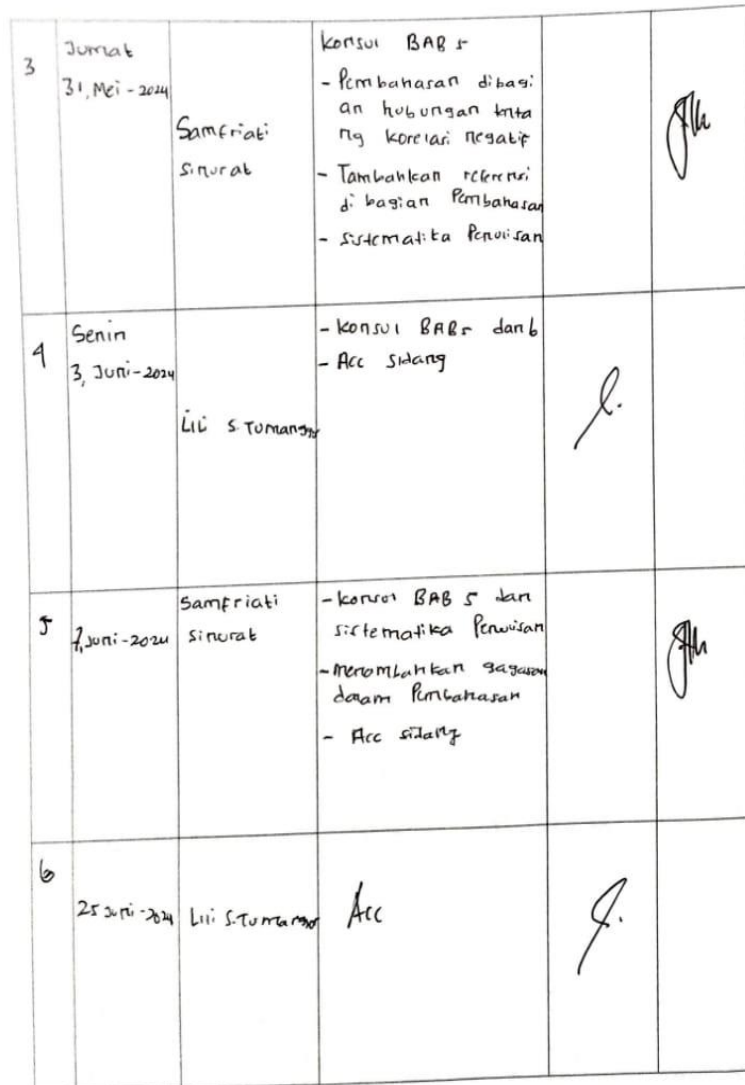 3
Jumat
31, Mei - 2024
Samfriati
Sinurat
Konsul BAB 5
- Pembahasan dibagi
an hubungan tnta
ng korelasi negatif
- Tambahkan referensi
di bagian Pembahasan
- Sistematika Penulisan
4
Senin
3, Juni - 2024
Lili S. Tumanggor
- Konsul BAB 5 dan 6
- Acc sidang
5
7, Juni - 2024
Samfriati
Sinurat
- Konsul BAB 5 dan
Sistematika Penulisan
- menambahkan gagasan
dalam Pembahasan
- Acc sidang
6
25 Juni - 2024
Lili S. Tumanggor
Acc